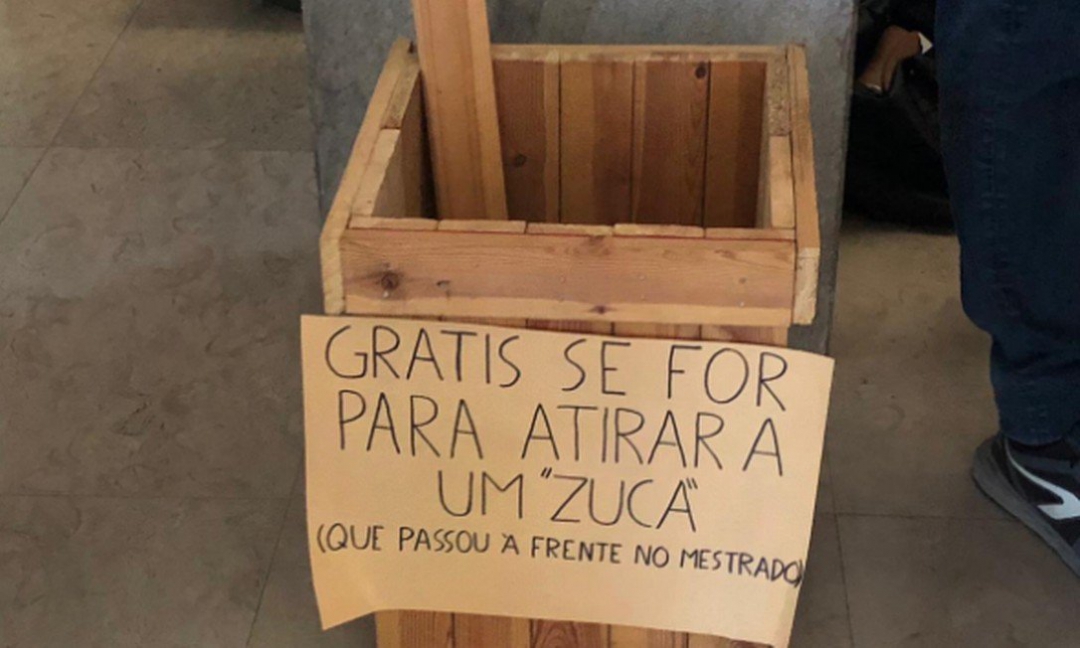 GRATIS SE FOR
PARA ATIRAR A
UM "ZUCA"
(QUE PASSOU À FRENTE NO MESTRADO)